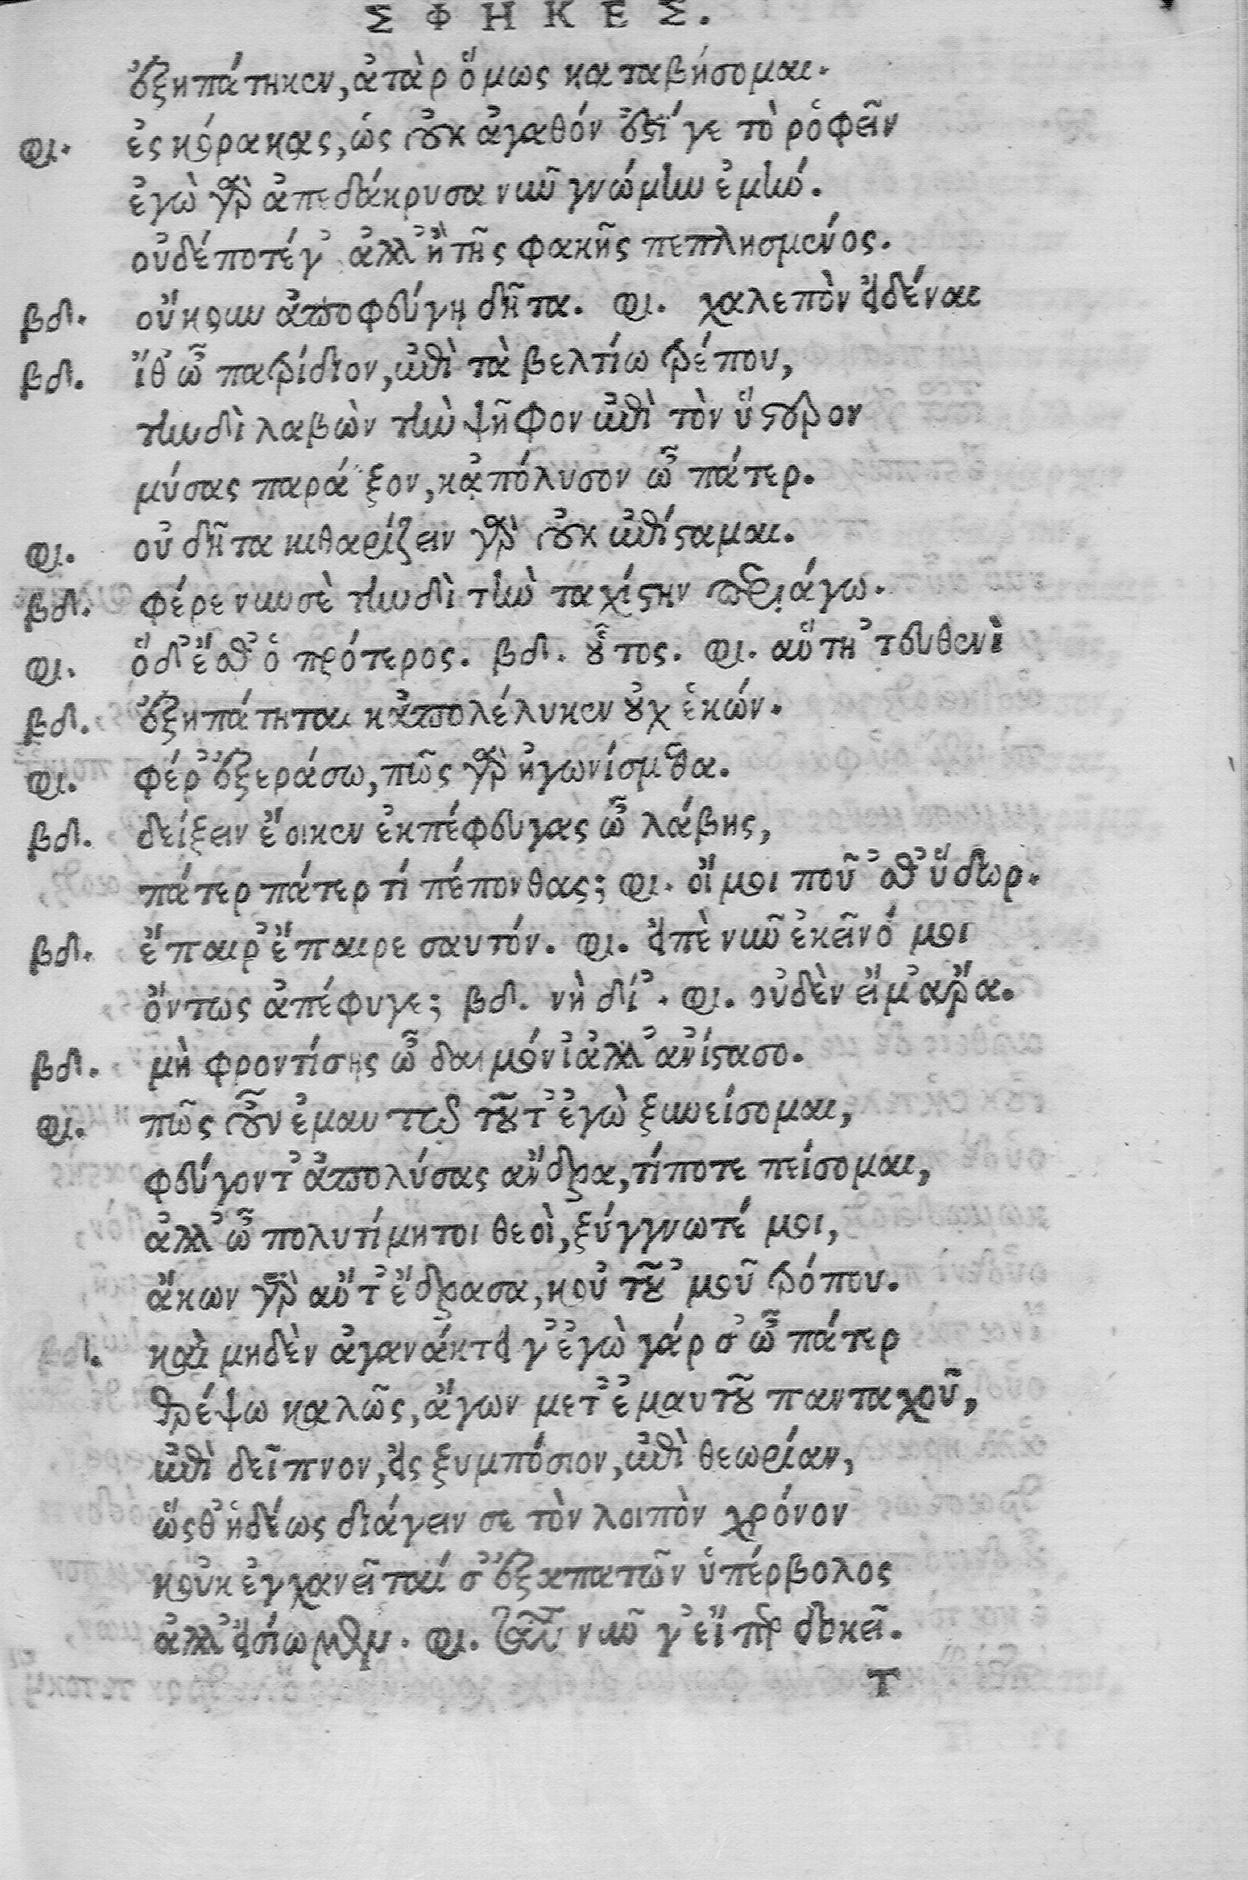 ΣΦΗΚΕΣ.
ἐξηπάτηκεν, ἀτὰρ ὅμως καταβήσομαι.
φι. ἐς κόρακας, ὡς οὐκ ἀγαθόν ἐστί γε τὸ ῥοφεῖν
ἐγὼ γὰρ ἀπεδάκρυσα νῦν γνώμην ἐμήν.
οὐδέποτέ γ' ἀλλ' ἢ τῆς φακῆς πεπλησμένος.
βδ. οὔκουν ἀποφεύγῃ δῆτα. φι. χαλεπὸν εἰδέναι
βδ. ἴθ' ὦ πατρίδιον, ἐπὶ τὰ βελτίω τρέπου,
τηνδὶ λαβὼν τὴν ψῆφον ἐπὶ τὸν ὕστερον
μύσας παρᾴξον, κἀπόλυσον ὦ πάτερ.
φι. οὐ δῆτα κιθαρίζειν γὰρ οὐκ ἐπίσταμαι.
βδ. φέρε νυν σὲ τηνδὶ τὴν ταχίστην περιάγω.
φι. ὅδ' ἔσθ' ὁ πρότερος. βδ. οὗτος. φι. αὕτη 'τευθενὶ
βδ. ἐξηπάτηται κἀπολέλυκεν οὐχ ἑκών.
φι. φέρ' ἐξεράσω, πῶς γὰρ ἠγωνίσμεθα.
βδ. δείξειν ἔοικεν ἐκπέφευγας ὦ λάβης,
πάτερ πάτερ τί πέπονθας; φι. οἴ μοι ποῦ 'σθ' ὕδωρ.
βδ. ἔπαιρ' ἔπαιρε σαυτόν. φι. εἰπὲ νῦν ἐκεῖνό μοι
ὄντως ἀπέφυγε; βδ. νὴ δί'. φι. οὐδὲν εἴμ' ἄρα.
βδ. μὴ φροντίσῃς ὦ δαιμόνι' ἀλλ' ἀνίστασο.
φι. πῶς οὖν ἐμαυτῷ τοῦτ' ἐγὼ ξυνείσομαι,
φεύγοντ' ἀπολύσας ἄνδρα, τίποτε πείσομαι,
ἀλλ' ὦ πολυτίμητοι θεοὶ, ξύγγνωτέ μοι,
ἄκων γὰρ αὔτ' ἔδρασα, κοὐ τοῦ 'μοῦ τρόπου.
βδ. καὶ μηδὲν ἀγανάκτει γ' ἐγὼ γάρ σ' ὦ πάτερ
θρέψω καλῶς, ἄγων μετ' ἐμαυτοῦ πανταχοῦ,
ἐπὶ δεῖπνον, εἰς ξυμπόσιον, ἐπὶ θεωρίαν,
ὥσθ' ἡδέως διάγειν σε τὸν λοιπὸν χρόνον
κοὐκ ἐγχανεῖταί σ' ἐξαπατῶν ὑπέρβολος
ἀλλ' εἰσίωμεν. φι. ταῦτα νῦν γ' εἴπερ δοκεῖ.
Τ